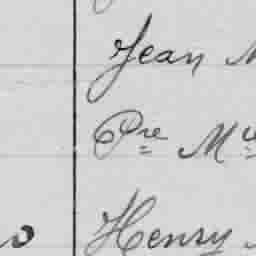 Jean M
Pre Mie
Henry